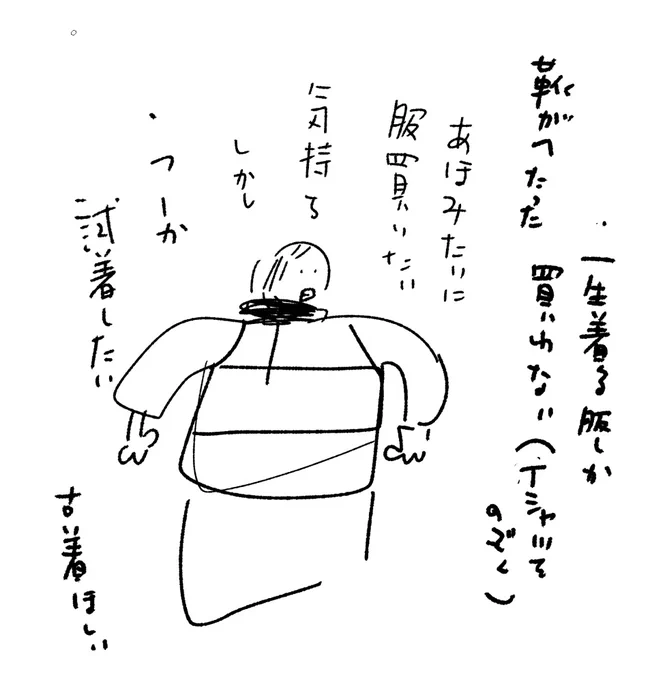 ・一生着る服しか
買いわない(Tシャツを
のぞく)
靴がへたった
あほみたいに
服買いたい
気持ち
しかし
・つーか
試着したい
古着ほしい